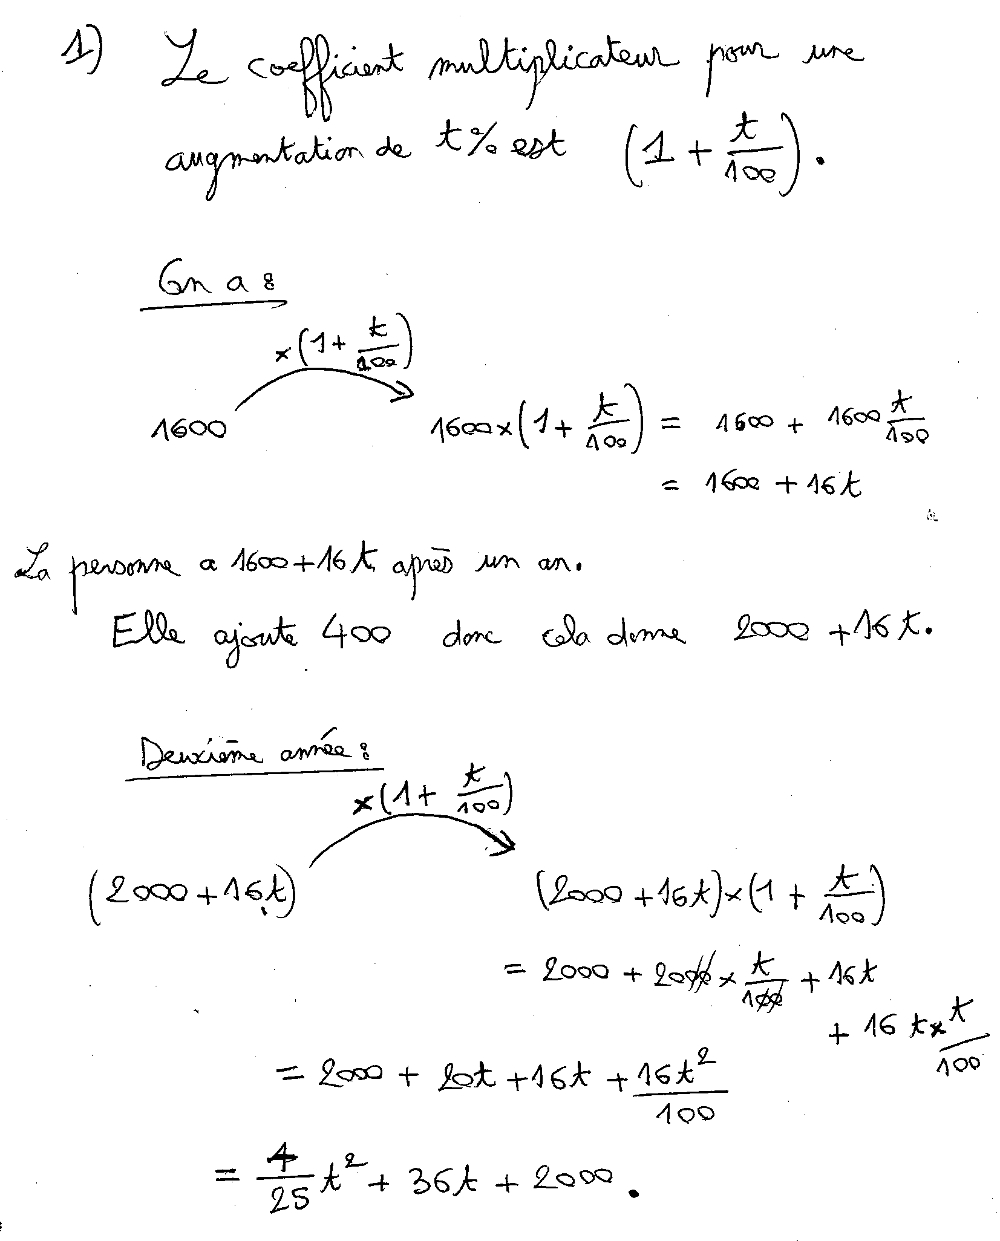 1) Le coefficient multiplicateur pour une
augmentation de t% est (1 + t/100).
On a :
×(1 + t/100)
1600 1600×(1 + t/100) = 1600 + 1600 t/100
= 1600 + 16t
La personne a 1600+16t après un an.
Elle ajoute 400 donc cela donne 2000 + 16t.
Deuxième année :
×(1 + t/100)
(2000+16t) (2000+16t)×(1 + t/100)
= 2000 + 2000 × t/100 + 16t
+ 16t × t/100
= 2000 + 20t + 16t + 16t²/100
= 4/25 t² + 36t + 2000.